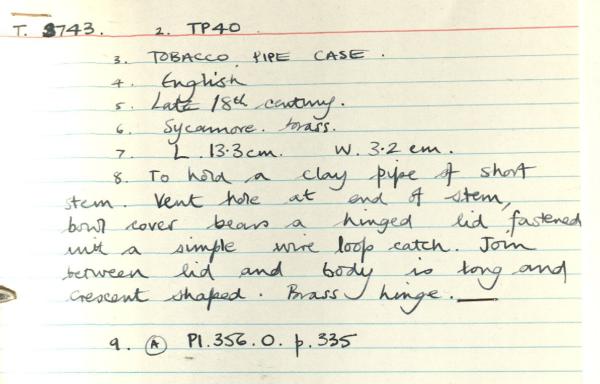 T. 8743. 2. TP40
3. TOBACCO PIPE CASE.
4. English
5. Late 18th century.
6. Sycamore. brass.
7. L. 13.3cm. W. 3.2 cm.
8. To hold a clay pipe of short
stem. Vent hole at end of stem,
bowl cover bears a hinged lid, fastened
with a simple wire loop catch. Join
between lid and body is long and
crescent shaped. Brass hinge.
9. (A) Pl. 356. O. p. 335